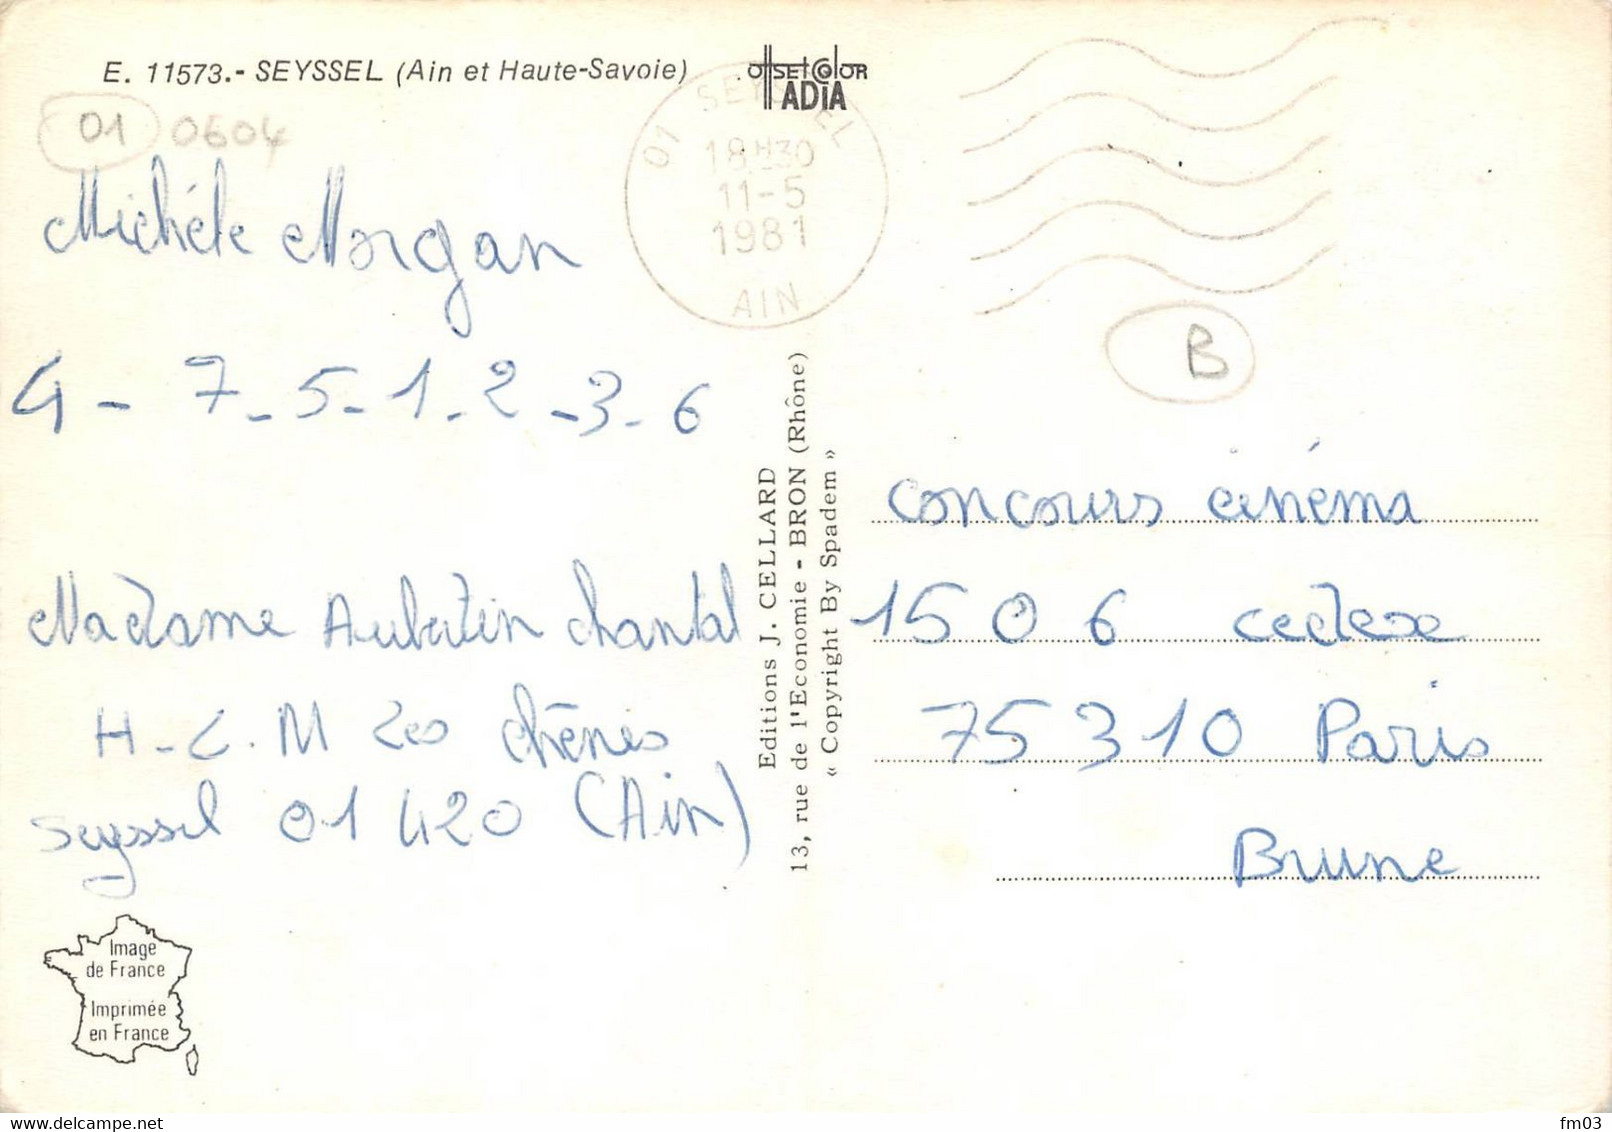 E. 11573.- SEYSSEL (Ain et Haute-Savoie)
OffSEt ColOR
ADIA
01 0604
01 SEYSSEL
18H30
11-5
1981
AIN
B
Michéle Morgan
4 - 7 - 5 - 1 - 2 - 3 - 6
Madame Aubertin chantal
H.L.M Les chênes
Seyssel 01 420 (Ain)
Editions J. CELLARD
13, rue de l'Economie - BRON (Rhône)
« Copyright By Spadem »
concours cinéma
1506 cedex
75310 Paris
Brune
Image
de France
Imprimée
en France
Delcampe.net
fm03